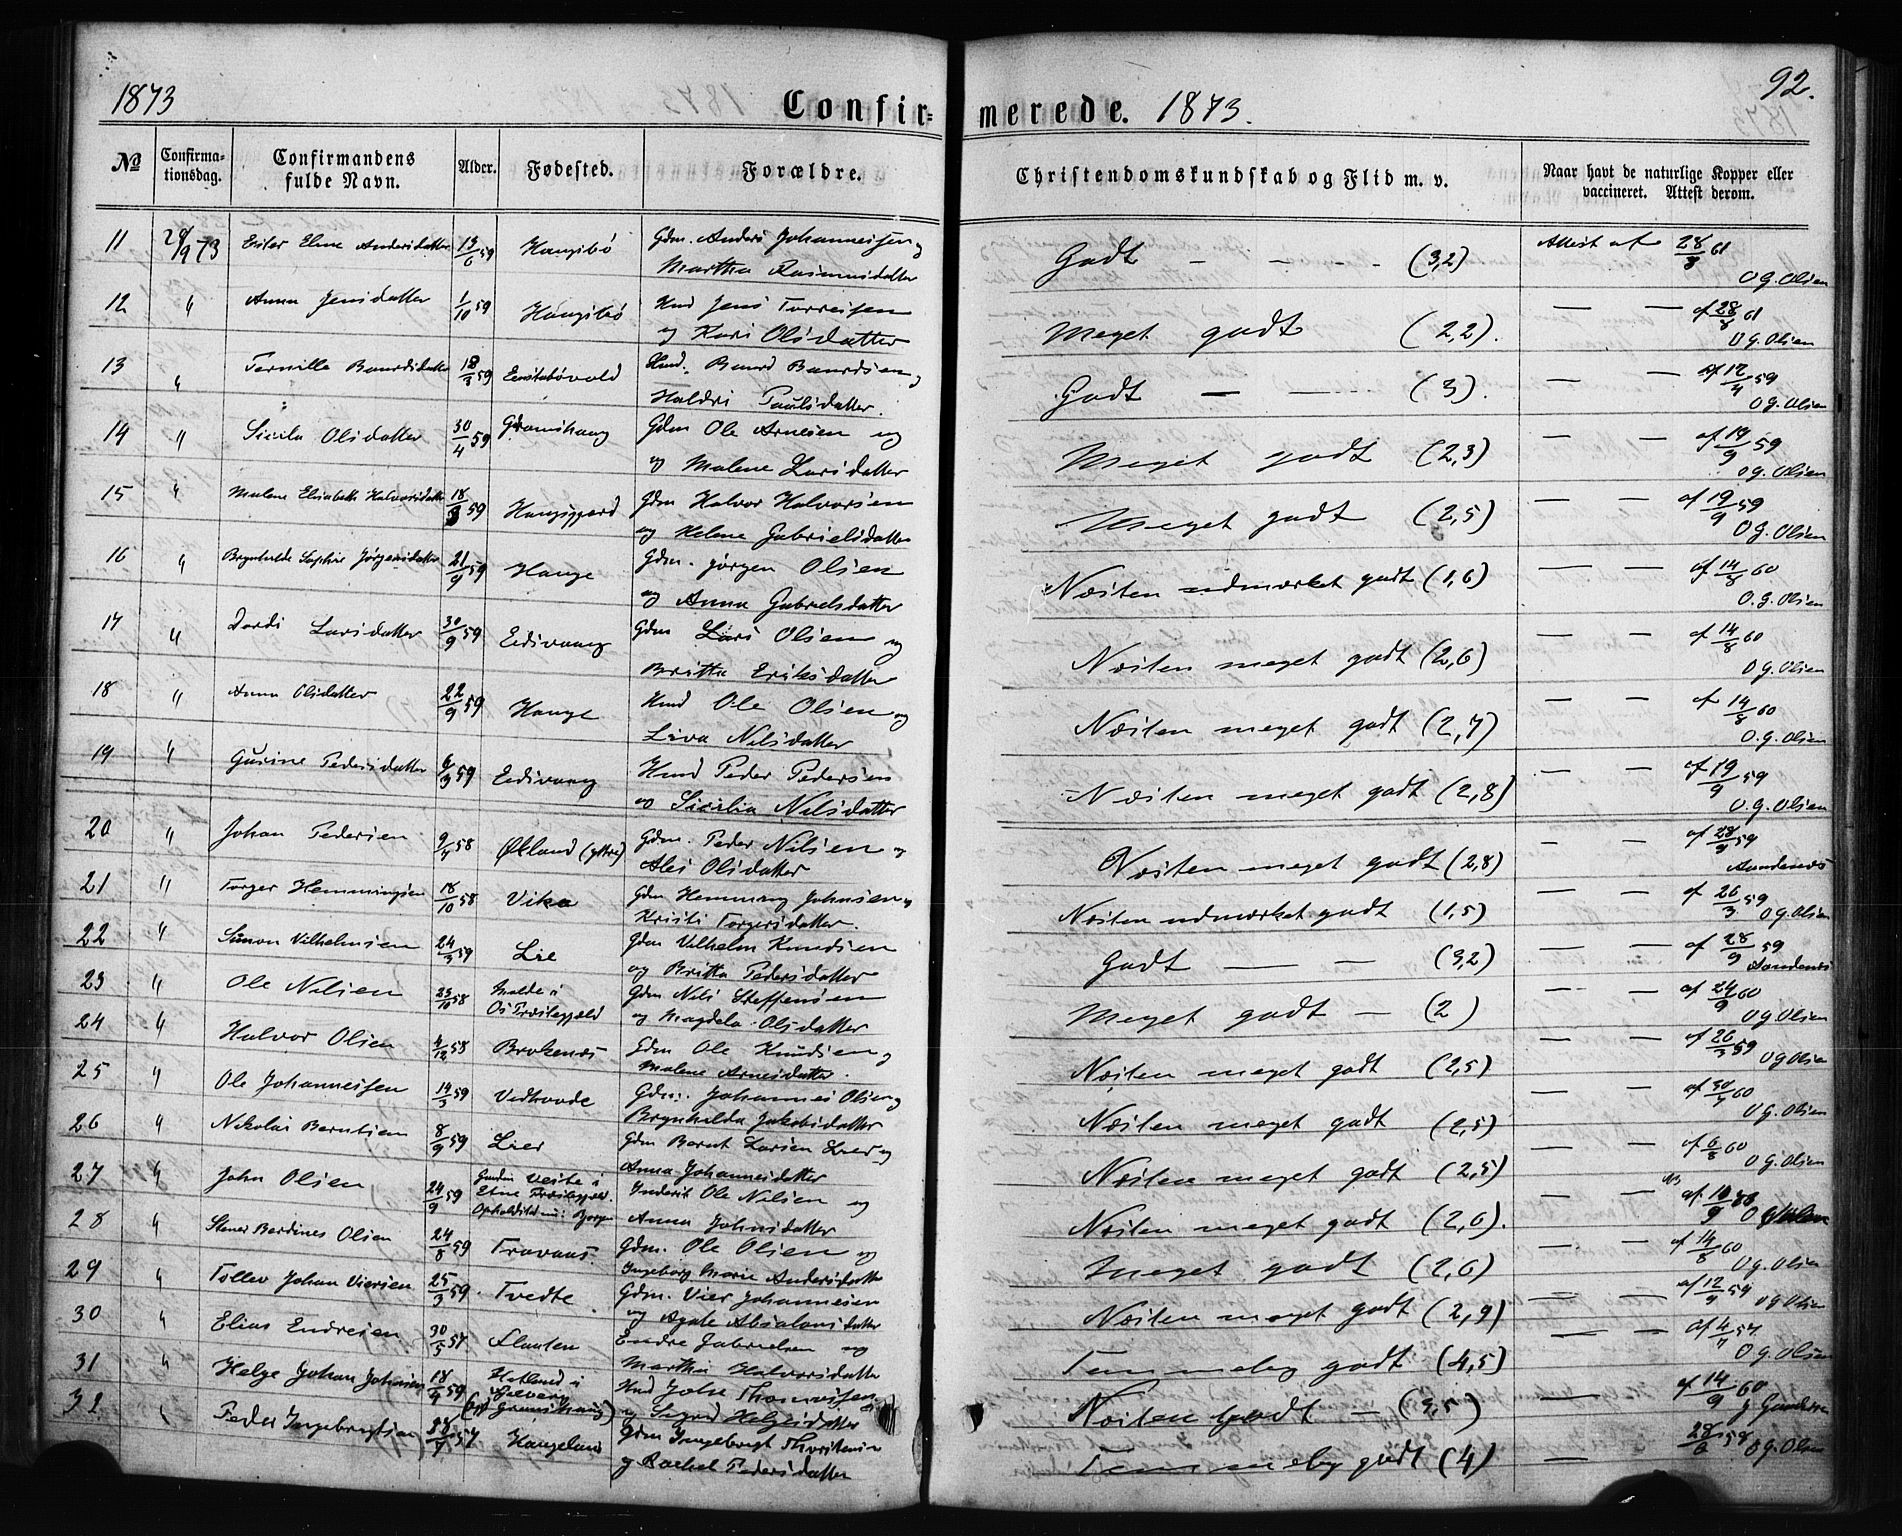 1873 Confirmerede. 1873. 92.
№ Confirmationsdag. Confirmandens fulde Navn. Alder. Fødested. Forældre. Christendomskundskab og Flid m. v. Naar havt de naturlige Kopper eller vaccineret. Attest derom.
11 28/9 73 Ester Eline Andersdatter 13/6 59 Gdm. Anders Johannessen og Godt – – – (3,2) Attest af 28/8 61
Martha Rasmusdatter O G. Olsen
12 " Anna Jensdatter 1/10 59 Hmd Jens Torresen Meget godt (2,2). — — af 28/8 61
og Kari Olsdatter O G. Olsen
13 " Pernille Baardsdatter 18/3 59 Eenstabøvold Hmd. Baard Baardsen og Godt — — (3). — — af 12/4 59
Haldri Paulsdatter. O G. Olsen
14 " Sicila Olsdatter 30/4 59 Gramshaug Gdm Ole Arnesen og Meget godt (2,3) — — af 19/9 59
og Malene Larsdatter O G. Olsen
15 " Malene Elisabeth Halvorsdatter 18/3 59 Haugsgjerd Gdm Halvor Halvorsen Meget godt (2,5) — — af 19/9 59
og Helene Gabrielsdatter O G. Olsen
16 " Brynhilde Sophie Jørgensdatter 21/9 59 Hauge Gdm. Jørgen Olsen Næsten udmærket godt (1,6) — — af 14/8 60
og Anna Gabrielsdatter O. G. Olsen
17 " Dordi Larsdatter 30/9 59 Eidsvaag Gdm Lars Olsen og Næsten meget godt (2,6) — — af 14/8 60
Britta Eriksdatter O G. Olsen
18 " Anna Olsdatter 22/9 59 Hauge Hmd Ole Olsen og Næsten meget godt (2,7) — — af 14/8 60
Liva Nilsdatter O. G. Olsen
19 " Gurine Pedersdatter 6/3 59 Eidsvaag Hmd Peder Pedersen Næsten meget godt (2,8) — — af 19/9 59
og Sicilia Nilsdatter O. G. Olsen
20 " Johan Pedersen 9/4 58 Økland (yttre) Gdm. Peder Nilsen og Næsten meget godt (2,8) — — af 28/9 59
Alis Olsdatter
21 " Torger Hemmingsen 18/10 58 Vika Gdm Hemming Johnsen og Næsten udmærket godt (1,5) — — af 26/3 59
Kristi Torgersdatter. O G. Olsen
22 " Simon Vilhelmsen 24/3 59 Lie Gdm Vilhelm Knudsen Godt — — (3,2) — — af 28/9 59
og Britta Pedersdatter
23 " Ole Nilsen 23/10 58 Molde i Gdm Nils Steffensen Meget godt — (2) — — af 24/9 60
Os Præstegjæld og Magdela Olsdatter O G. Olsen
24 " Halvor Olsen 4/12 58 Brokenæs Gdm Ole Knudsen og Næsten meget godt (2,5) — — af 26/3 59
Malene Arnesdatter. O G Olsen
25 " Ole Johannessen 14/3 59 Vedhovde Gdm. Johannes Olsen og Næsten meget godt (2,5) — — af 30/4 60
Brynhilda Jakobsdatter O G. Olsen
26 " Nikolai Berntsen 8/9 59 Lier Gdm Bernt Larsen Lier og Næsten meget godt (2,5) — — af 6/8 60
Anna Johannesdatter O G. Olsen
27 " John Olsen 24/9 59 Veste i Inderst Ole Nilsen og Næsten meget godt (2,6). — — NB af
Etne Præstegjæld. Anna Johnsdatter
28 " Stener Berdines Olsen 24/8 59 Travaas. Gdm. Ole Olsen og Meget godt (2,6) — — af 14/8 60
Ingeborg Marie Andersdatter O G. Olsen
29 " Tollev Johan Viersen 25/3 59 Tvedte Gdm. Vier Johannesen Næsten meget godt (2,9) — — af 12/4 59
og Agate Absalonsdatter O G Olsen
30 " Elias Endresen 30/5 57 Flaaten Endre Gabrielsen og Temmelig godt (4,5) — — af 4/7 57.
Martha Halvorsdatter O G. Olsen
31 " Helge Johan Johnsen 18/4 59 Hetland i Hmd John Thomassen Næsten godt — (3,5) — — af 14/9 60
(ved Gramshaug) og Sigrid Helgesdatter
32 " Peder Ingebrigtsen 28/4 57 Haugeland Gdm Ingebregt Thorstensen Temmelig godt (4) — 28/6 58
og Rachel Pedersdatter O G. Olsen